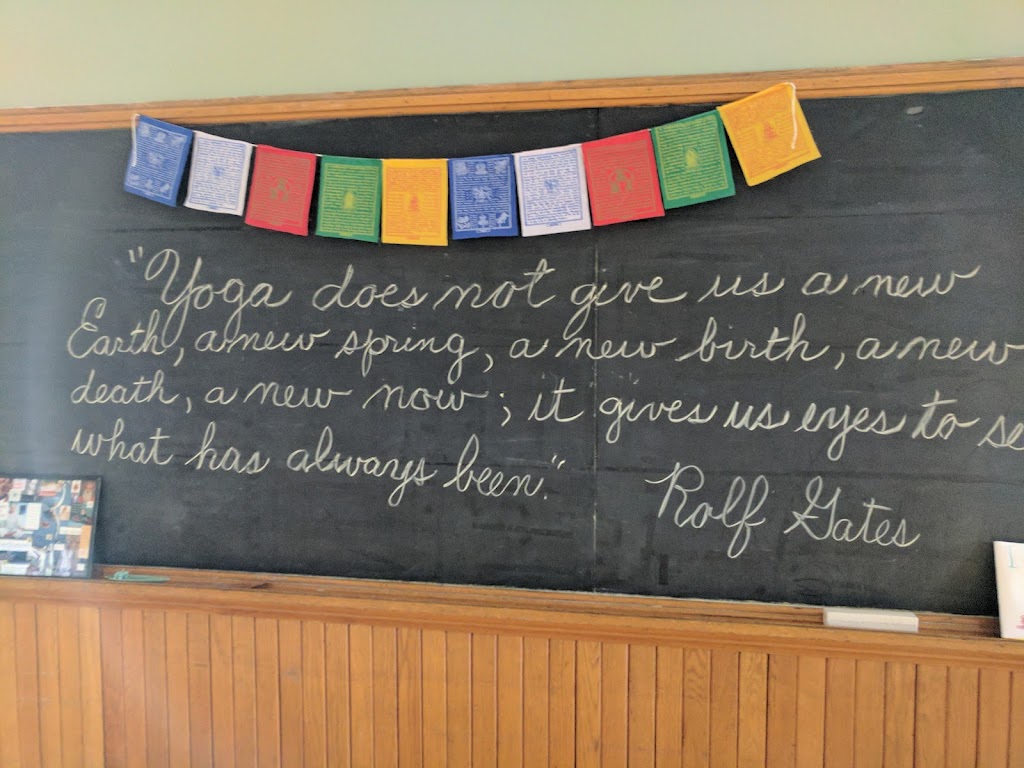 "Yoga does not give us a new
Earth, a new spring, a new birth, a new
death, a new now; it gives us eyes to se
what has always been."
Rolf Gates